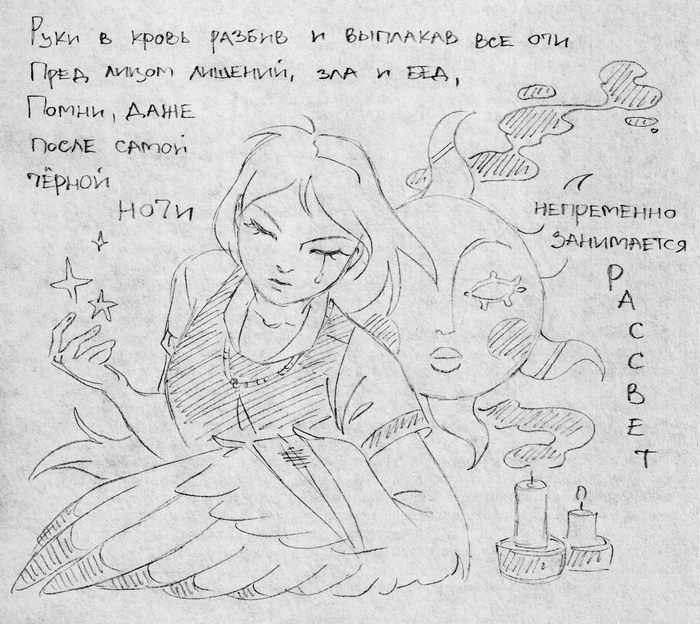 Руки в кровь разбив и выплакав все очи
Пред лицом лишений, зла и бед,
Помни, даже
после самой
чёрной
ночи
непременно
занимается
РАССВЕТ